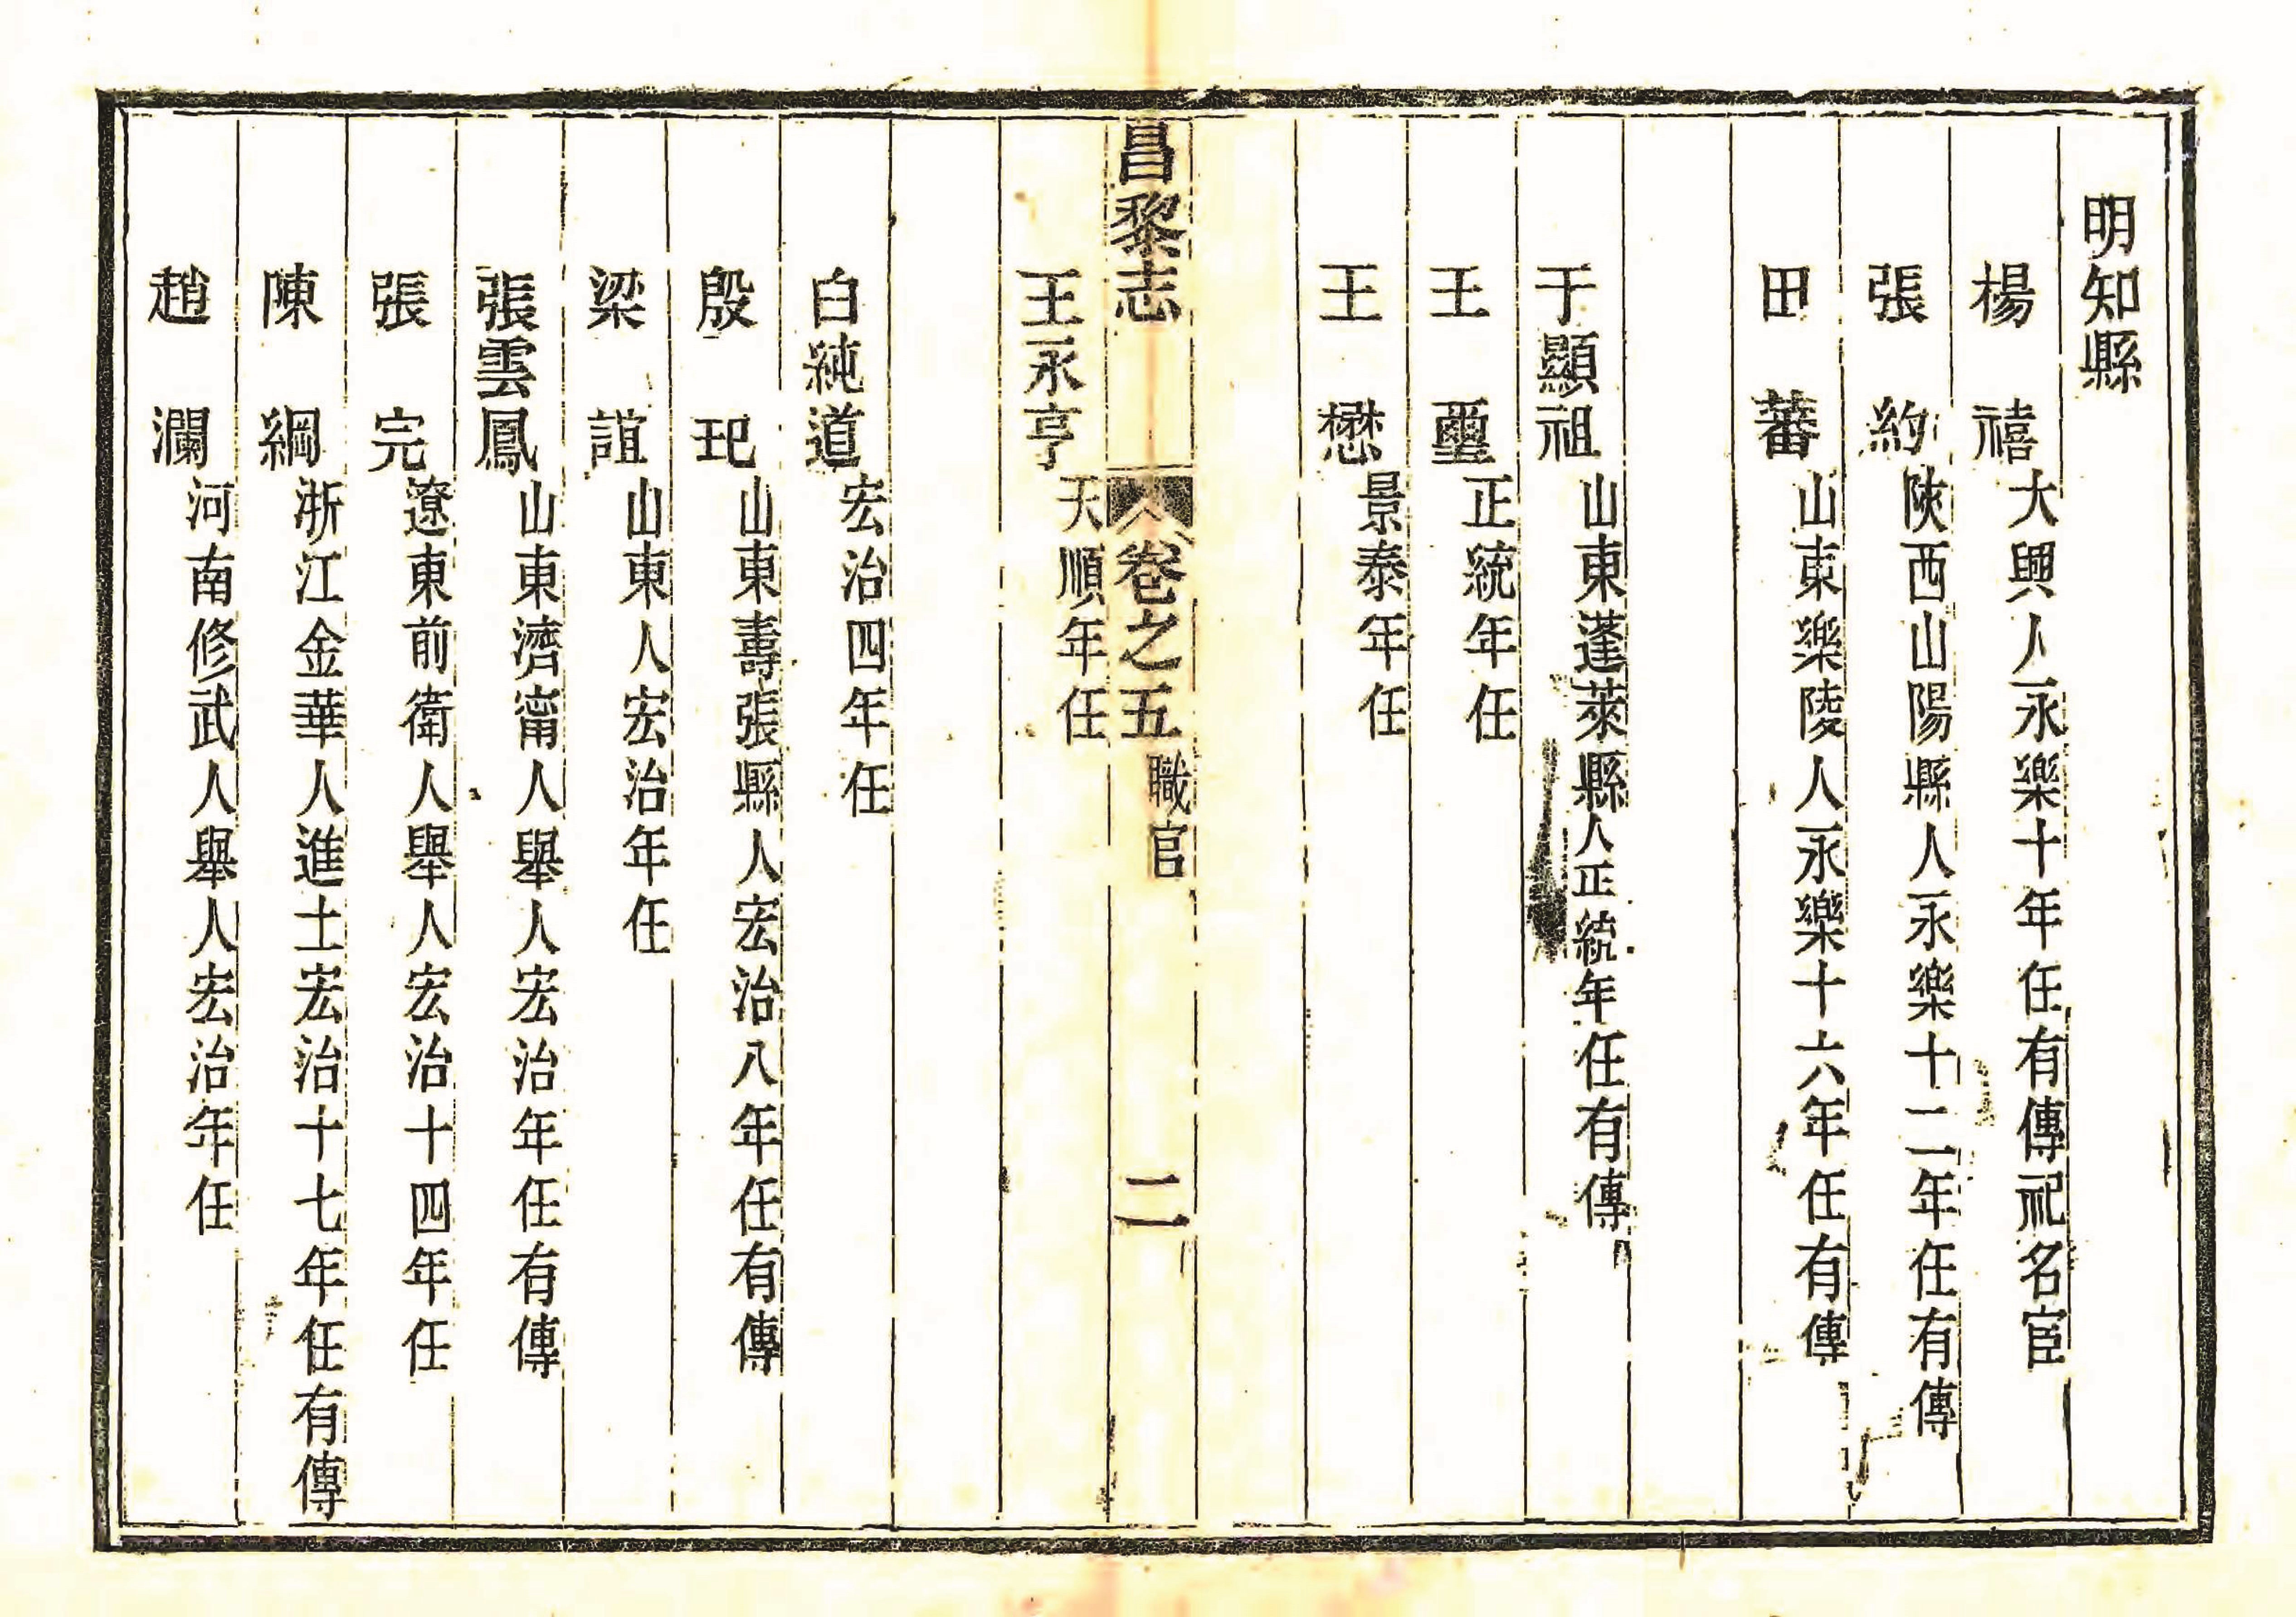 明知縣
楊禧大興人永樂十年任有傳祀名宦
張約陝西山陽縣人永樂十二年任有傳
田蕃山東樂陵人永樂十六年任有傳
于顯祖山東蓬萊縣人正統年任有傳
王璽正統年任
王懋景泰年任
昌黎志卷之五職官二
王永亨天順年任
白純道宏治四年任
殷玘山東壽張縣人宏治八年任有傳
梁誼山東人宏治年任
張雲鳳山東濟甯人舉人宏治年任有傳
張完遼東前衛人舉人宏治十四年任
陳綱浙江金華人進士宏治十七年任有傳
趙瀾河南修武人舉人宏治年任